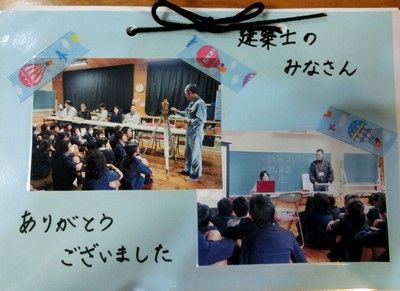 建築士の
みなさん
ありがとう
ございました